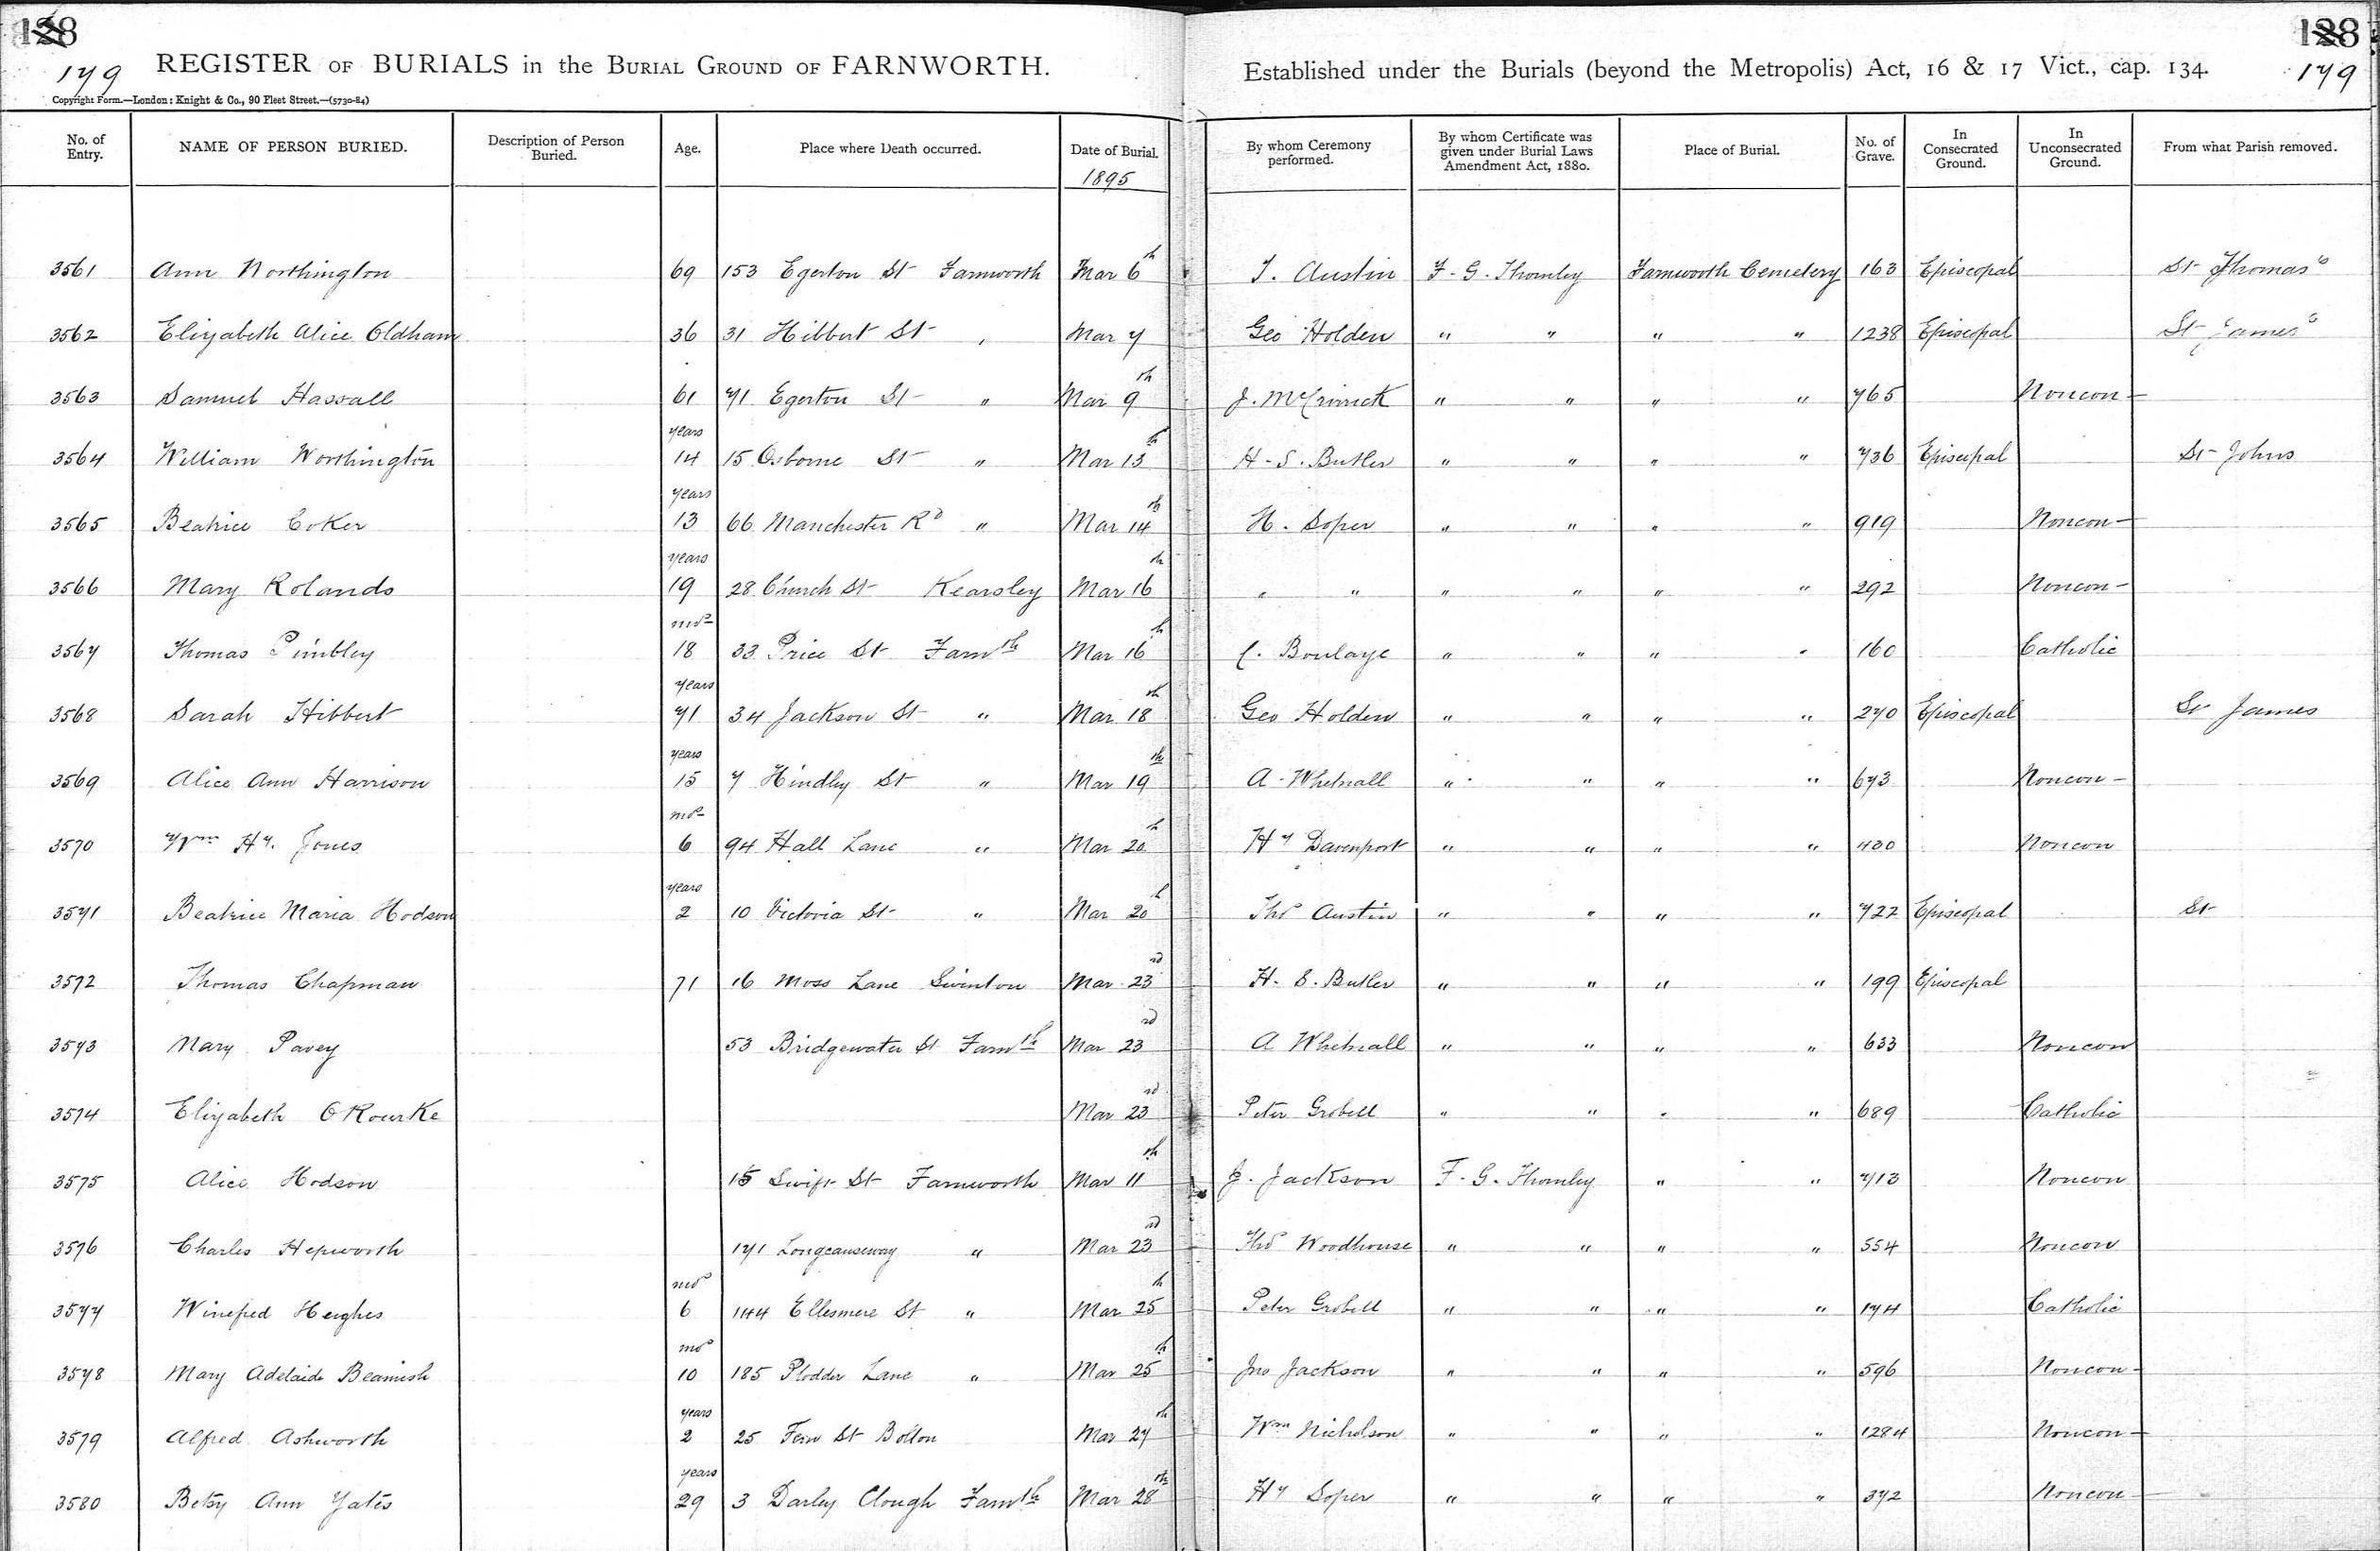 128 128
179 REGISTER OF BURIALS in the BURIAL GROUND OF FARNWORTH. Established under the Burials (beyond the Metropolis) Act, 16 & 17 Vict., cap. 134. 179
Copyright Form.—London: Knight & Co., 90 Fleet Street.—(5730-84)
No. of Entry. NAME OF PERSON BURIED. Description of Person Buried. Age. Place where Death occurred. Date of Burial. 1895 By whom Ceremony performed. By whom Certificate was given under Burial Laws Amendment Act, 1880. Place of Burial. No. of Grave. In Consecrated Ground. In Unconsecrated Ground. From what Parish removed.
3561 Ann Worthington 69 153 Egerton St Farnworth Mar 6th T. Austin F. G. Thornley Farnworth Cemetery 163 Episcopal St Thomas's
3562 Elizabeth Alice Oldham 36 31 Hibbert St " Mar 7 Geo Holden " " " " 1238 Episcopal St James's
3563 Samuel Hassall 61 71 Egerton St " Mar 9th J. McCrirrick " " " " 765 Noncon
3564 William Worthington 14 years 15 Osborne St " Mar 13th H. S. Butler " " " " 736 Episcopal St Johns
3565 Beatrice Coker 13 years 66 Manchester Rd " Mar 14th H. Soper " " " " 919 Noncon
3566 Mary Rolands 19 years 28 Church St Kearsley Mar 16th " " " " " " 292 Noncon
3567 Thomas Pimbley 18 mos 33 Price St Farnth Mar 16th C. Boulaye " " " " 160 Catholic
3568 Sarah Hibbert 71 years 34 Jackson St " Mar 18th Geo Holden " " " " 270 Episcopal St James
3569 Alice Ann Harrison 15 years 7 Hindley St " Mar 19th A. Whetnall " " " " 673 Noncon
3570 Wm Hy. Jones 6 mos 94 Hall Lane " Mar 20th Hy Davenport " " " " 400 Noncon
3571 Beatrice Maria Hodson 2 years 10 Victoria St " Mar 20th Thos Austin " " " " 722 Episcopal St
3572 Thomas Chapman 71 16 Moss Lane Swinton Mar 23rd H. S. Butler " " " " 199 Episcopal
3573 Mary Pavey 53 Bridgewater St Farnth Mar 23rd A Whetnall " " " " 633 Noncon
3574 Elizabeth O Rourke Mar 23rd Peter Grobell " " " " 689 Catholic
3575 Alice Hodson 15 Swift St Farnworth Mar 11th J. Jackson F. G. Thornley " " 713 Noncon
3576 Charles Hepworth 171 Longcauseway " Mar 23rd Thos Woodhouse " " " " 554 Noncon
3577 Winefred Heighes 6 mos 144 Ellesmere St " Mar 25th Peter Grobell " " " " 174 Catholic
3578 Mary Adelaide Beamish 10 mos 185 Plodder Lane " Mar 25th Jno Jackson " " " " 596 Noncon
3579 Alfred Ashworth 2 years 25 Fern St Bolton Mar 27th Wm Nicholson " " " " 1284 Noncon
3580 Betsy Ann Yates 29 years 3 Darley Clough Farnth Mar 28th Hy Soper " " " " 372 Noncon